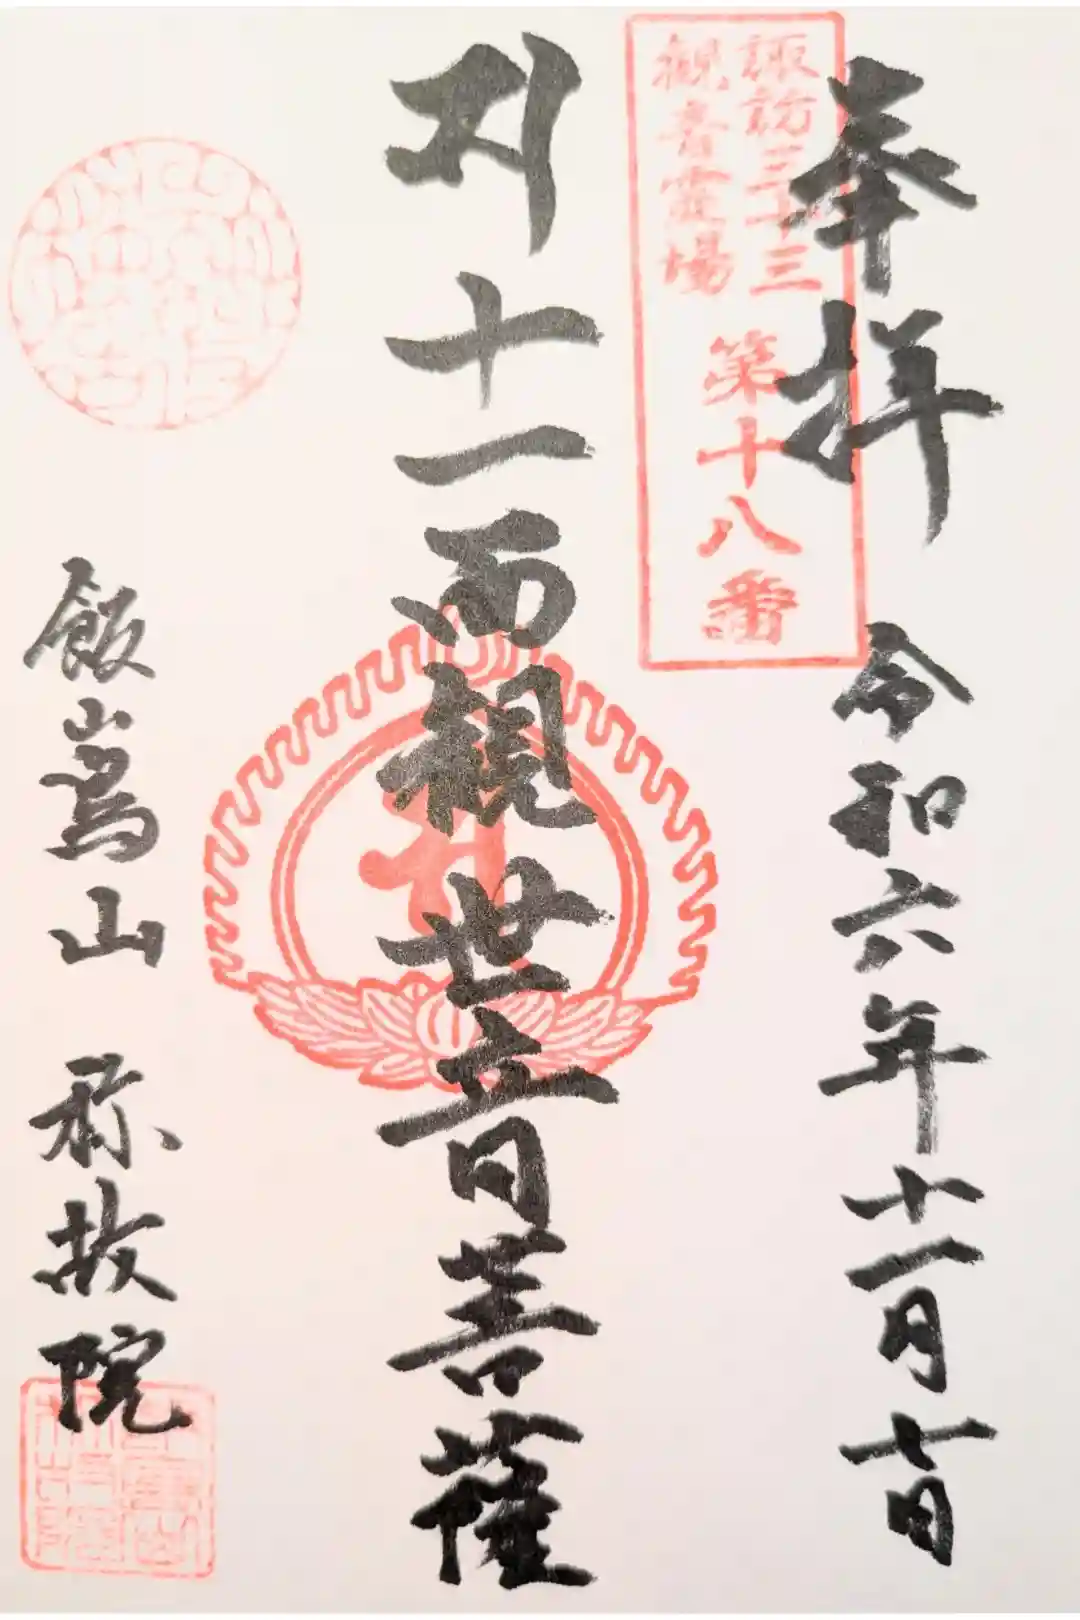 奉拝 令和六年十一月十日
諏訪三十三
観音霊場
第十八番
十一面観世音菩薩
飯嶌山 称故院